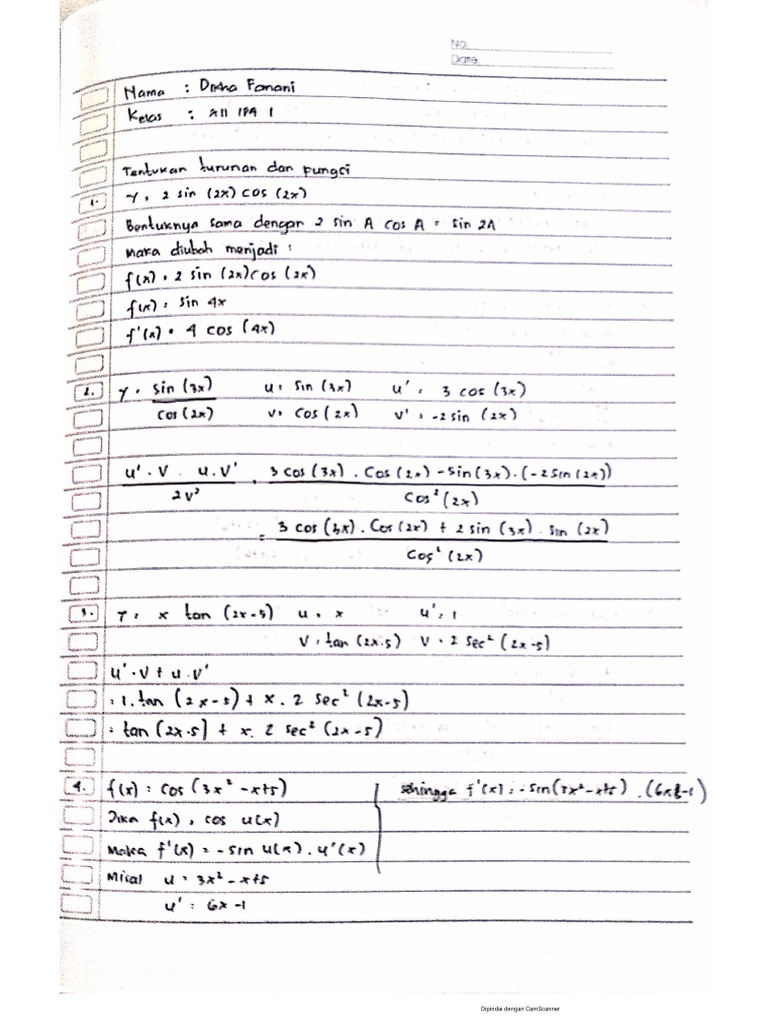 No.
Date.
Nama : Disha Fanani
Kelas : XII IPA 1
Tentukan turunan dari fungsi
1. Y = 2 sin (2x) cos (2x)
Bentuknya sama dengan 2 sin A cos A = sin 2A
Maka diubah menjadi :
f(x) = 2 sin (2x) cos (2x)
f(x) = sin 4x
f'(x) = 4 cos (4x)
2. Y = sin (3x) u = sin (3x) u' = 3 cos (3x)
cos (2x) v = cos (2x) v' = -2 sin (2x)
u'.v - u.v' = 3 cos (3x) . cos (2x) - sin (3x) . (-2 sin (2x))
2v² cos² (2x)
= 3 cos (3x) . cos (2x) + 2 sin (3x) . sin (2x)
cos² (2x)
3. Y = x tan (2x-5) u = x u' = 1
v = tan (2x-5) v = 2 sec² (2x-5)
u'.v + u.v'
= 1. tan (2x-5) + x. 2 sec² (2x-5)
= tan (2x-5) + x. 2 sec² (2x-5)
4. f(x) = cos (3x² - x+5) sehingga f'(x) = -sin(3x²-x+5) . (6x-1)
Jika f(x) = cos u(x)
Maka f'(x) = -sin u(x) . u'(x)
Misal u = 3x² - x+5
u' = 6x-1
Dipindai dengan CamScanner